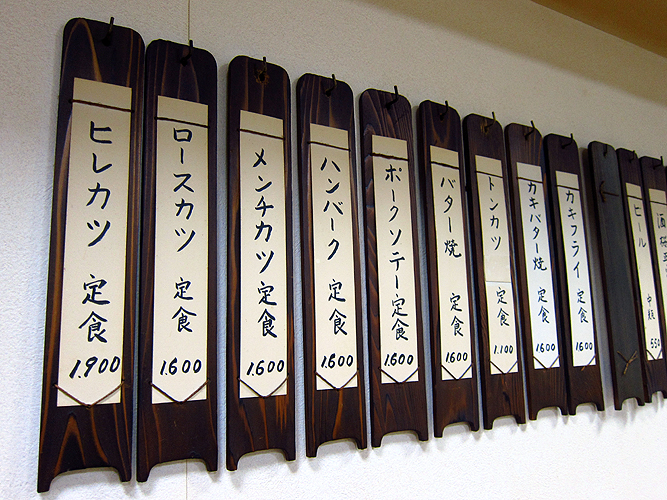 ヒレカツ 定食 1.900
ロースカツ 定食 1.600
メンチカツ定食 1.600
ハンバーク 定食 1.600
ポークソテー定食 1.600
バター焼 定食 1.600
トンカツ 定食 1.100
カキバター焼 定食 1.600
カキフライ 定食 1.600
ビール 中瓶 550
酒